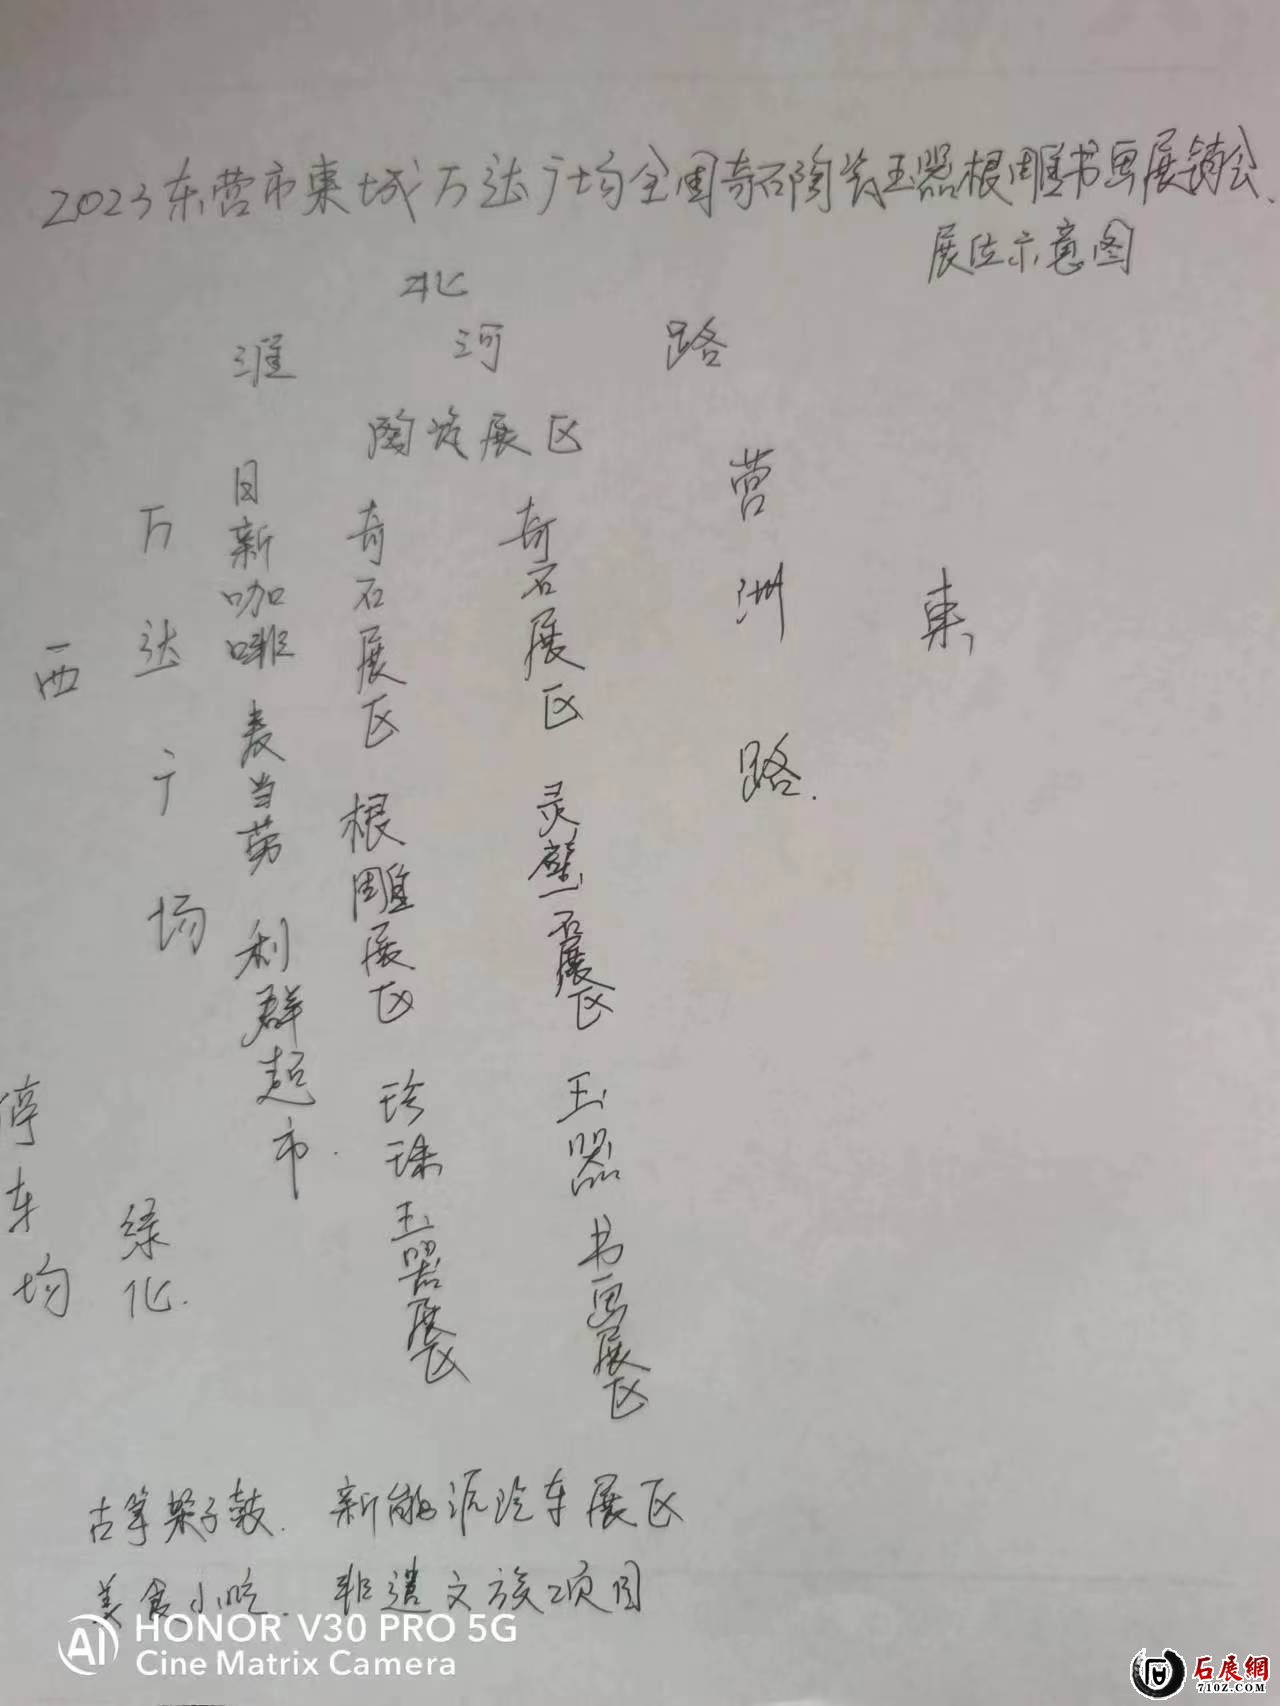 2023东营市東城万达广场全国奇石陶瓷玉器根雕书画展销会.
展位示意图
北
淮河路
陶瓷展区
西
万达广场
日新咖啡 麦当劳 利群超市.
奇石展区 根雕展区 珍珠玉器展区
奇石展区 灵璧石展区 玉器书画展区
营洲路.
東
停车场
绿化.
古筝架子鼓. 新能源汽车展区
美食小吃. 非遗文旅项目
AI HONOR V30 PRO 5G
Cine Matrix Camera
石展網
71OZ.COM